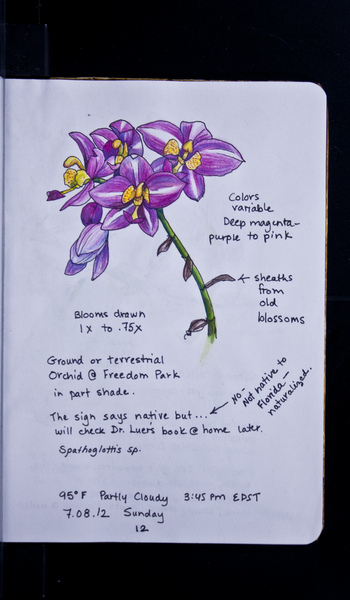 Colors
variable
Deep magenta-
purple to pink
sheaths
from
old
blossoms
Blooms drawn
1x to .75x
Ground or terrestrial
Orchid @ Freedom Park
in part shade.
The sign says native but...
will check Dr. Luer's book @ home later.
No-
Not native to
Florida -
naturalized.
Spathoglottis sp.
95°F Partly Cloudy 3:45 PM EDST
7.08.12 Sunday
12